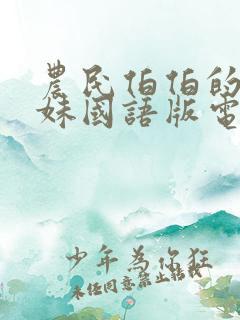 農民伯伯的
妹國語版電
少年為你狂
未经同意禁止转载